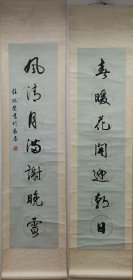 春暖花開迎朝日
風清月滿謝晚雪